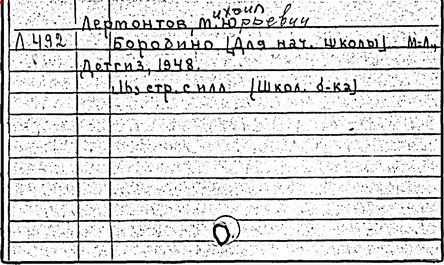 Лермонтов, Михаил Юрьевич
Л 492 Бородино [Для нач. школы] М-Л.,
Детгиз, 1948.
16 стр. с илл. [Школ. б-ка]
О.